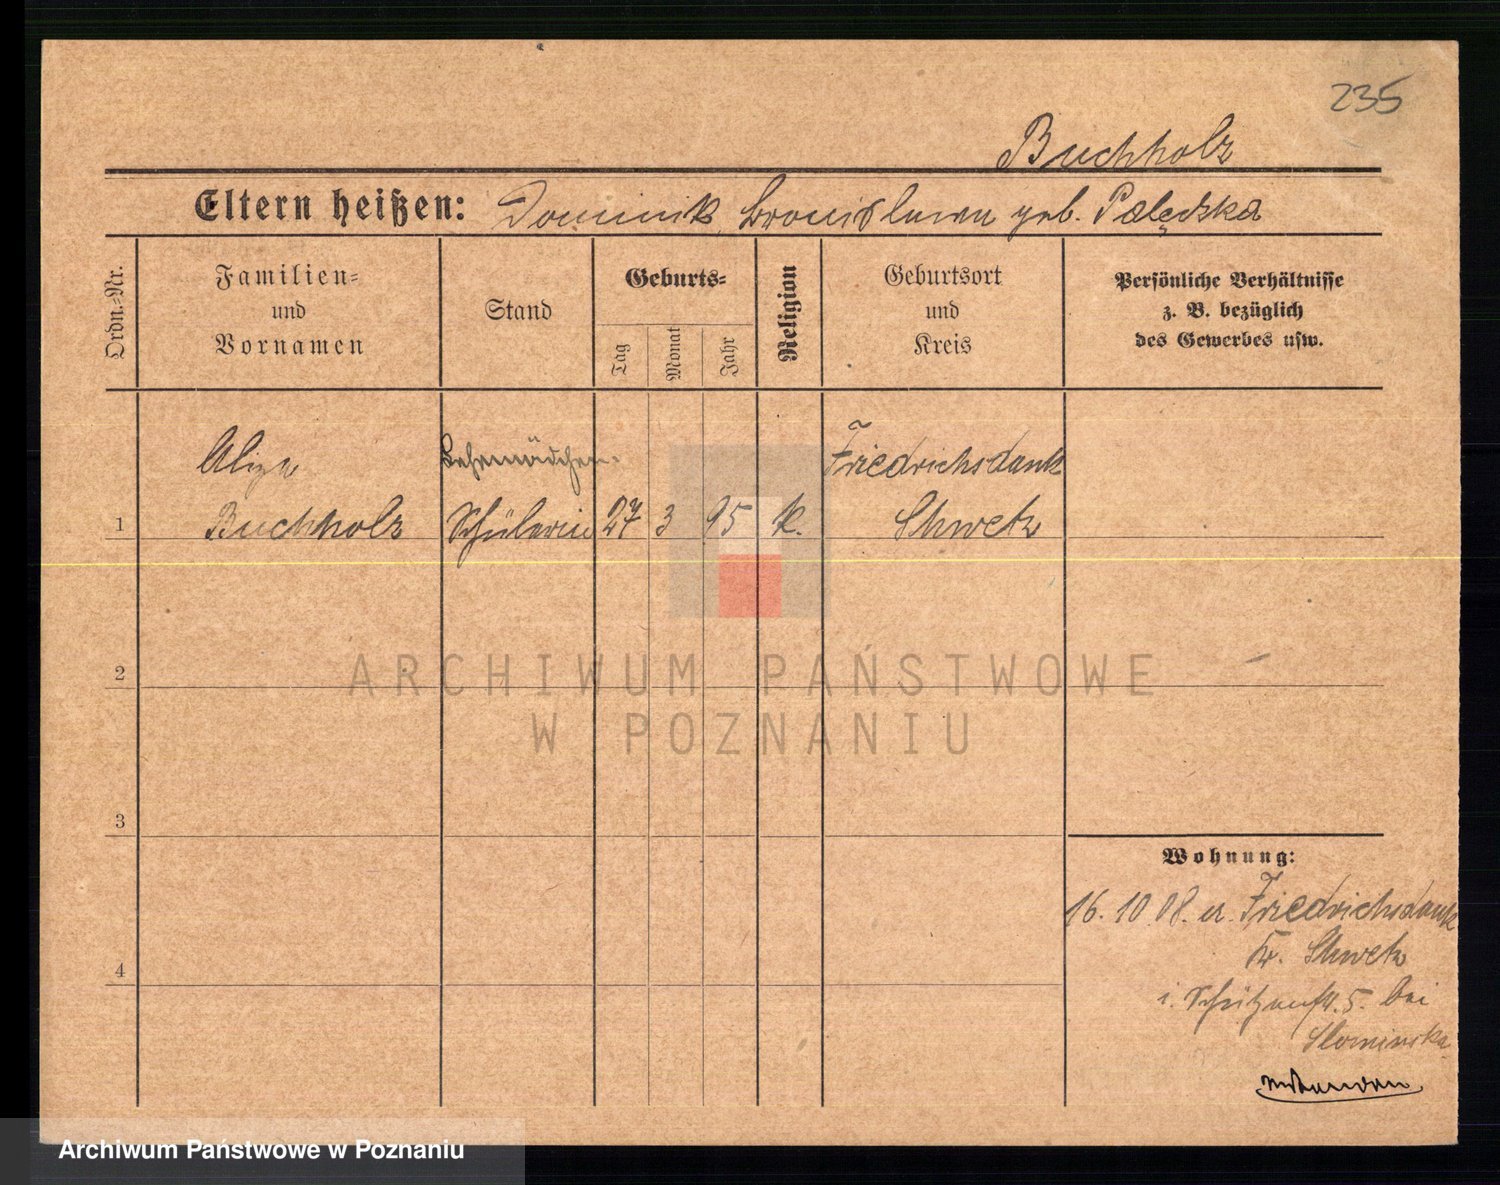 235
Buchholz
Eltern heißen: Dominik, Bronislawa geb. Palędzka
Ordn.-Nr.
Familien-
und
Vornamen
Stand
Geburts-
Tag
Monat
Jahr
Religion
Geburtsort
und
Kreis
Persönliche Verhältnisse
z. B. bezüglich
des Gewerbes usw.
Aliza
Lehrmädchen
Friedrichsdank
1 Buchholz Schülerin 27 3 95 k. Schwetz
2
ARCHIWUM PAŃSTWOWE
W POZNANIU
3
Wohnung:
16. 10 08. Friedrichsdank
Kr. Schwetz
4
i. Schützenstr. 5. bei
Slominska
Archiwum Państwowe w Poznaniu